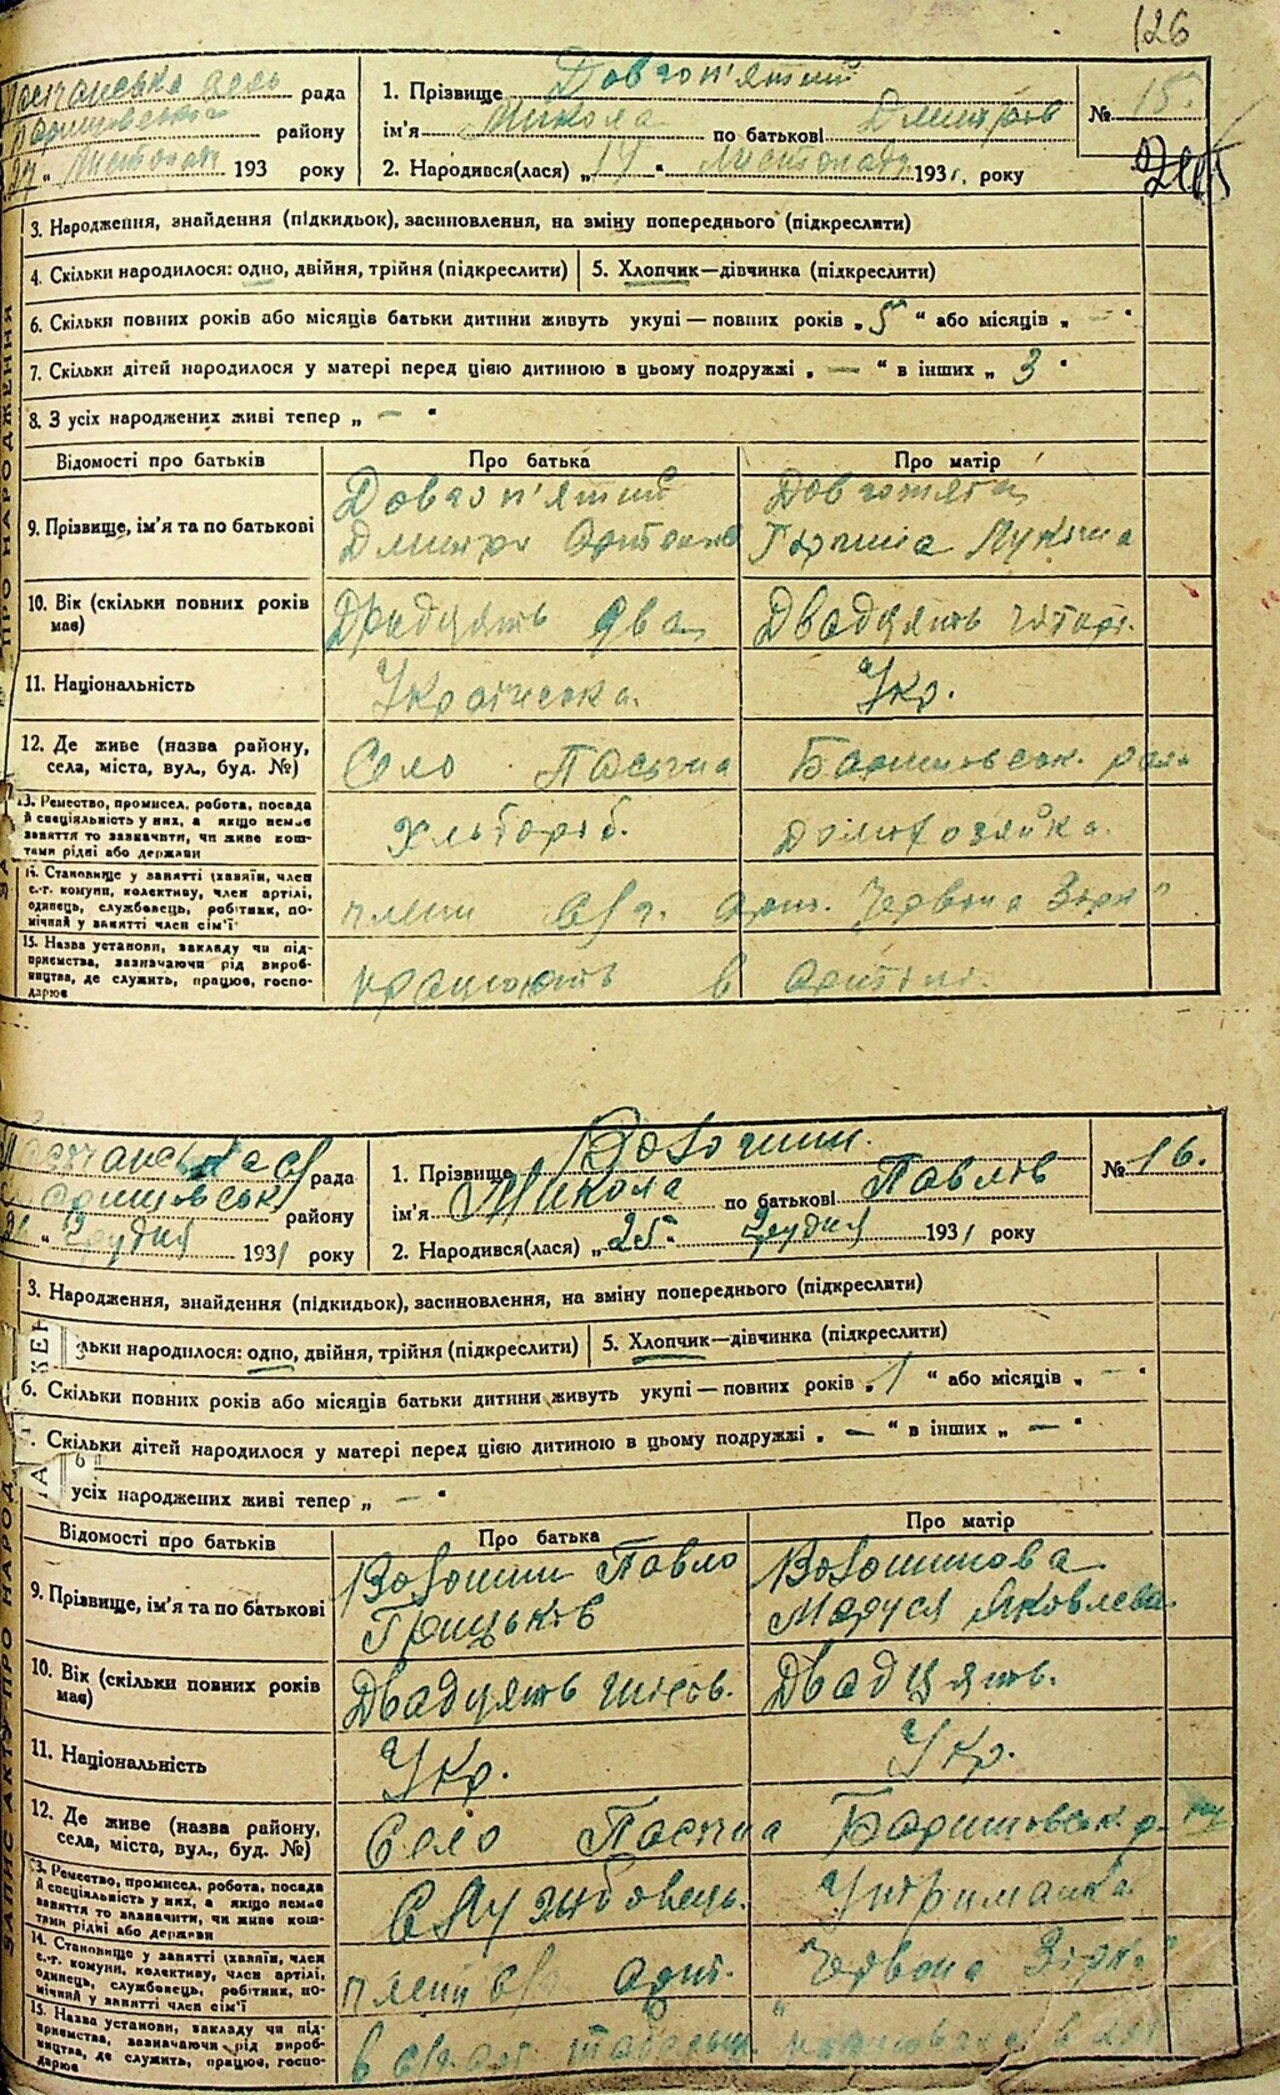 126
рада
району
27 " Листопада 193 року
1. Прізвище Довгоп'ятий
ім'я Микола по батькові Дмитрів
2. Народився(лася) „ 14 " Листопада 1931. року
№ 15.
3. Народження, знайдення (підкидьок), засиновлення, на зміну попереднього (підкреслити)
4. Скільки народилося: одно, двійня, трійня (підкреслити)
5. Хлопчик—дівчинка (підкреслити)
6. Скільки повних років або місяців батьки дитини живуть укупі — повних років „ 5 " або місяців „ — "
7. Скільки дітей народилося у матері перед цією дитиною в цьому подружжі „ — " в інших „ 3 "
8. З усіх народжених живі тепер „ — "
Відомості про батьків
Про батька
Про матір
9. Прізвище, ім'я та по батькові
Довгоп'ятий
Дмитро
Довгопята
Горпина
10. Вік (скільки повних років
має)
два
Двадцять
11. Національність
Українська.
Укр.
12. Де живе (назва району,
села, міста, вул., буд. №)
Село Пасічна Баришовськ.
13. Ремество, промисел, робота, посада
й спеціяльність у них, а якщо немає
заняття то зазначити, чи живе кош-
тами рідні або держави
Хлібороб.
14. Становище у занятті (хазяїн, член
с.-г. комуни, колективу, член артілі,
одинець, службовець, робітник, по-
мічний у занятті член сім'ї
член арт. Червона Зірка"
15. Назва установи, закладу чи під-
приємства, зазначаючи рід вироб-
ництва, де служить, працює, госпо-
дарює
працюють в артілі.
рада
району
" Грудня 1931 року
1. Прізвище Волошин.
ім'я Микола по батькові Павлів
2. Народився(лася) „ 25 " Грудня 1931 року
№ 16.
3. Народження, знайдення (підкидьок), засиновлення, на зміну попереднього (підкреслити)
льки народилося: одно, двійня, трійня (підкреслити)
5. Хлопчик—дівчинка (підкреслити)
6. Скільки повних років або місяців батьки дитини живуть укупі — повних років „ 1 " або місяців „ — "
. Скільки дітей народилося у матері перед цією дитиною в цьому подружжі „ — " в інших „ — "
усіх народжених живі тепер „ — "
Відомості про батьків
Про батька
Про матір
9. Прізвище, ім'я та по батькові
Волошин Павло
Грицьків
Волошинова
Маруся Яковлева
10. Вік (скільки повних років
має)
Двадцять
Двадцять.
11. Національність
Укр.
Укр.
12. Де живе (назва району,
села, міста, вул., буд. №)
Село Пасічна Баришовськ. р.
13. Ремество, промисел, робота, посада
й спеціяльність у них, а якщо немає
заняття то зазначити, чи живе кош-
тами рідні або держави
Службовець.
Утриманка
14. Становище у занятті (хазяїн, член
с.-г. комуни, колективу, член артілі,
одинець, службовець, робітник, по-
мічний у занятті член сім'ї
член с/г арт. "Червона Зірка"
15. Назва установи, закладу чи під-
приємства, зазначаючи рід вироб-
ництва, де служить, працює, госпо-
дарює
ЗАПИС АКТУ ПРО НАРОД